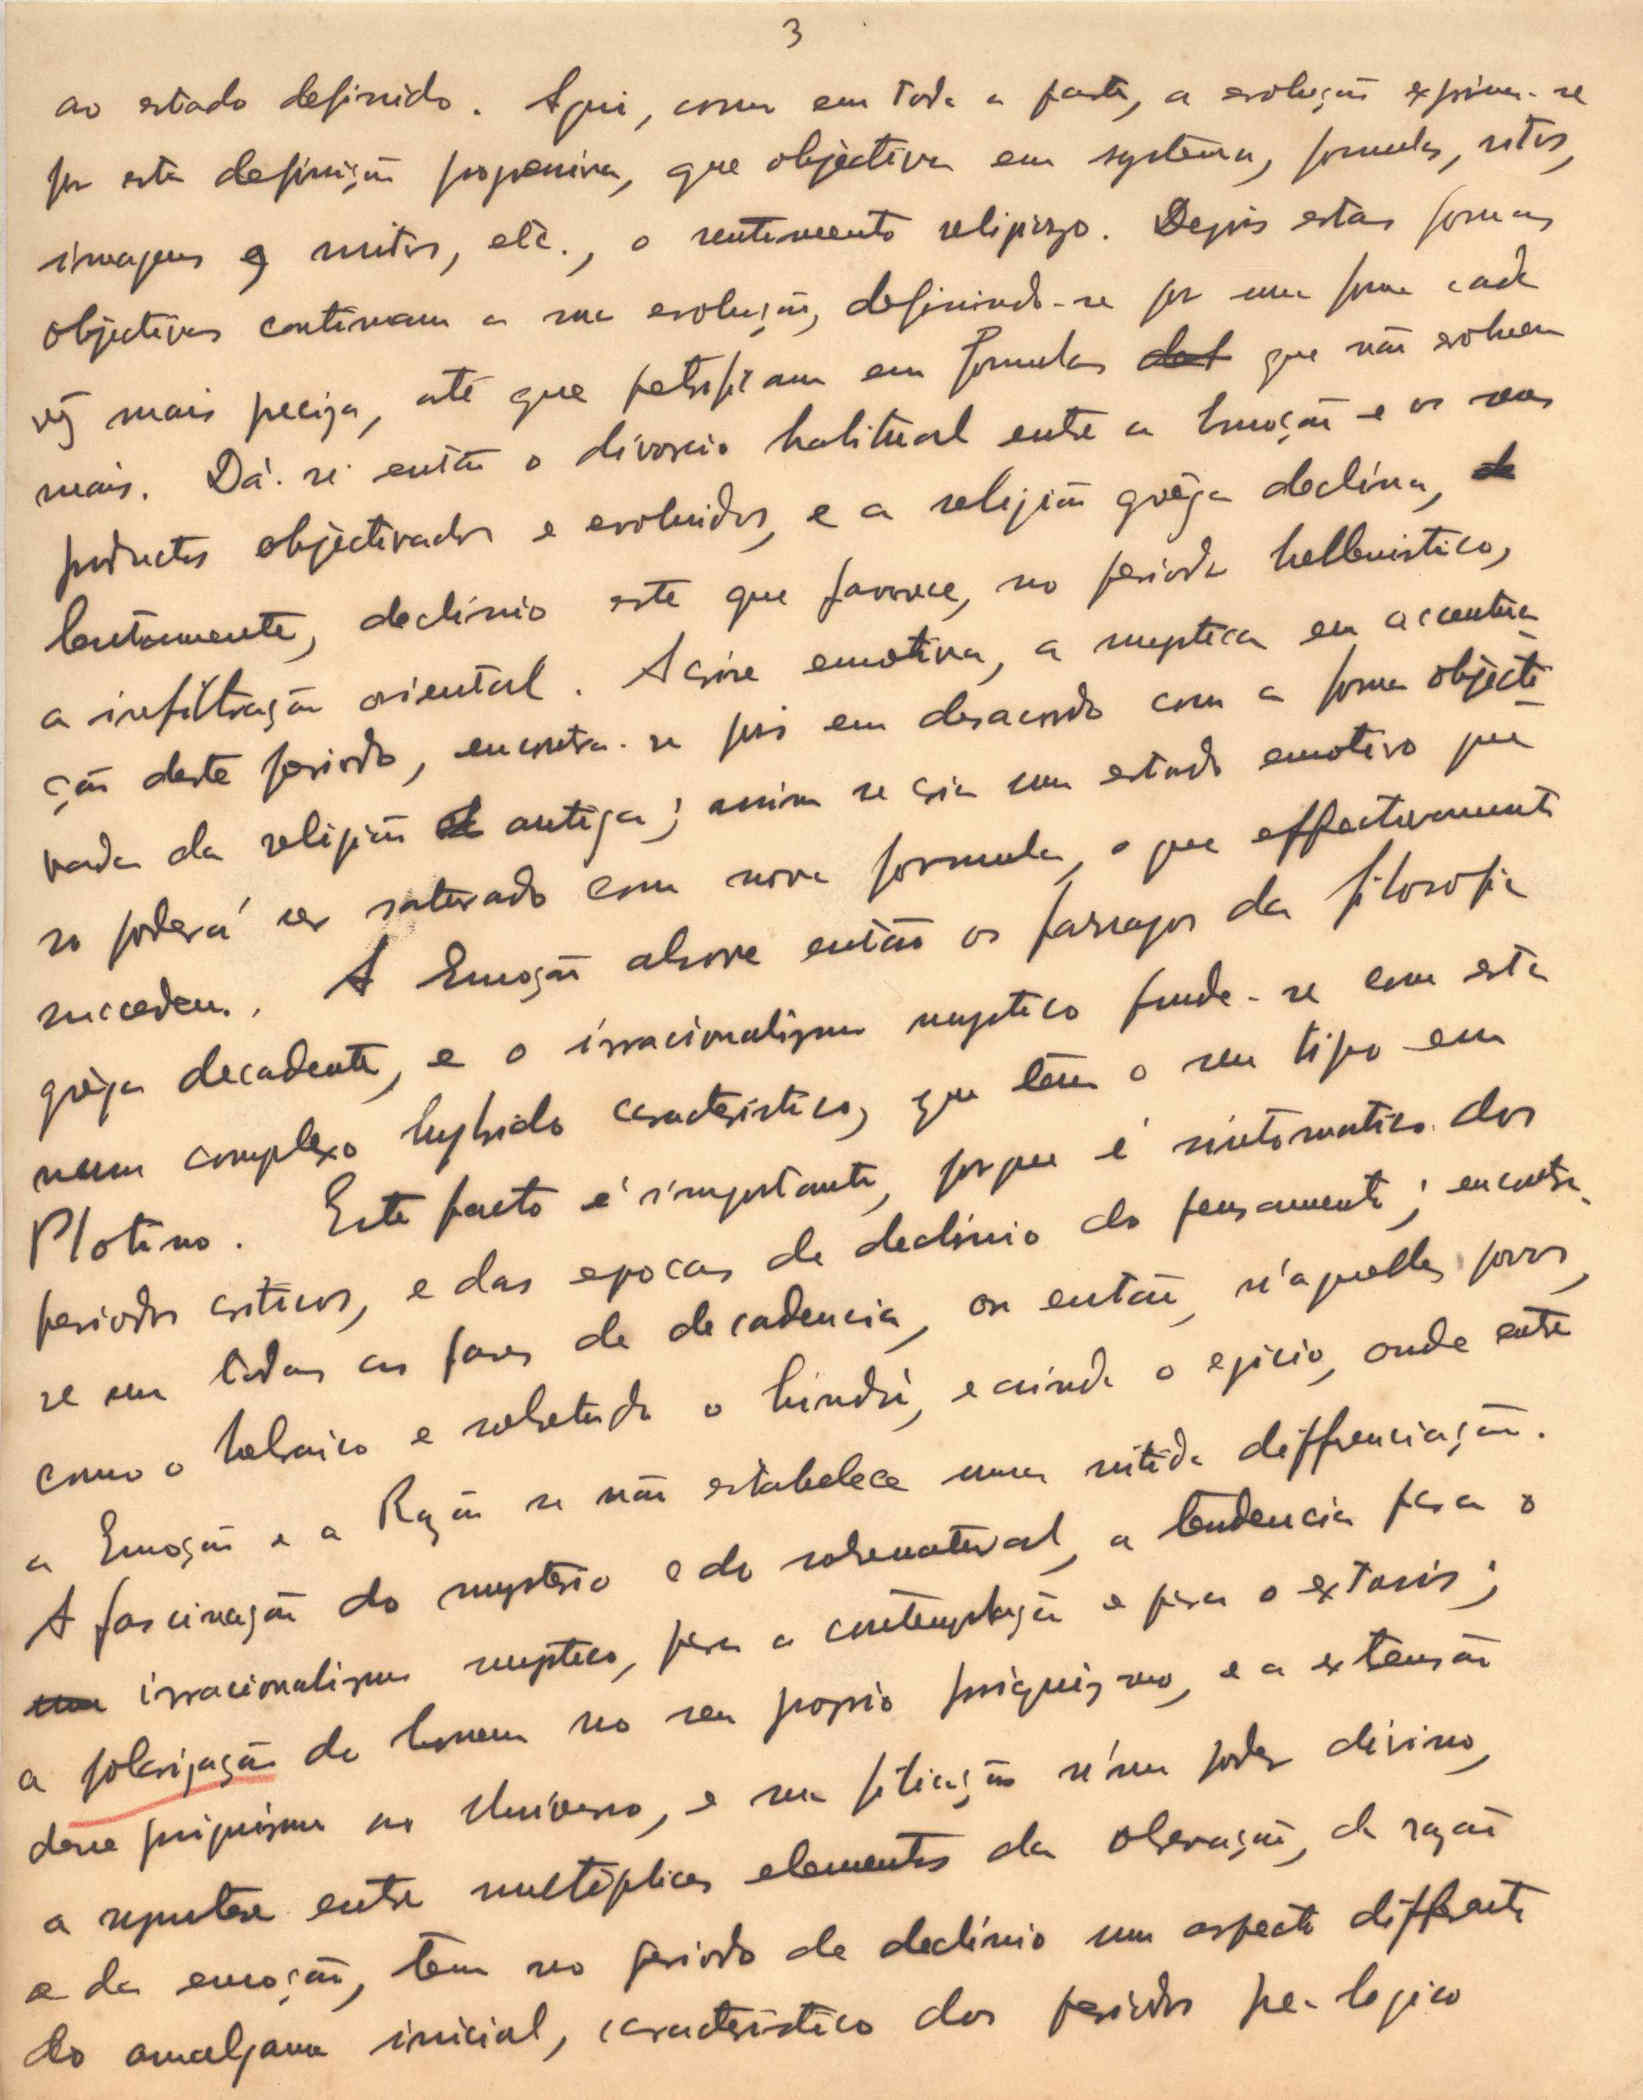 3
ao estado definido. Aqui, como em toda a parte, a evolução exprime-se
por esta definição progressiva, que objectiva em systema, formulas, ritos,
imagens e mitos, etc., o sentimento religiozo. Depois estas formas
objectivas continuam a sua evolução, definindo-se por uma forma cada
vez mais preciza, até que petrificam em formulas que não evoluem
mais. Dá-se então o divorcio habitual entre a Emoção e os seus
productos objectivados e evoluidos, e a religião grêga declina,
lentamente, declinio este que favorece, no periodo hellenistico,
a infiltração oriental. A crise emotiva, a mystica em accentua-
ção deste periodo, encontra-se pois em desacordo com a forma objecti-
vada da religião antiga; assim se cria um estado emotivo que
so poderá ser saturado com nova formula, o que effectivamente
succedeu. A Emoção absorve então os farrapos da filosofia
grêga decadente, e o irracionalismo mystico funde-se com esta
num complexo hybrido caracteristico, que tem o seu tipo em
Plotino. Este facto é importante, porque é sintomatico dos
periodos criticos, e das epocas de declinio do pensamento; encontra-
se em todas as fases de decadencia, ou então, n'aquelles povos,
como o hebraico e sobretudo o hindú, e ainda o egicio, onde entre
a Emoção e a Razão se não estabelece uma nitida differenciação.
A fascinação do mysterio e do sobrenatural, a tendencia para o
irracionalismo mystico, para a contemplação e para o extasis;
a polarização do homem no seu proprio psiquismo, e a extensão
desse psiquismo ao Universo, e sua fixação n'um poder divino,
a mystura entre multiplices elementos da observação, da razão
e da emoção, tem no periodo de declinio um aspecto differente
do amalgama inicial, caracteristico dos periodos pre-logico